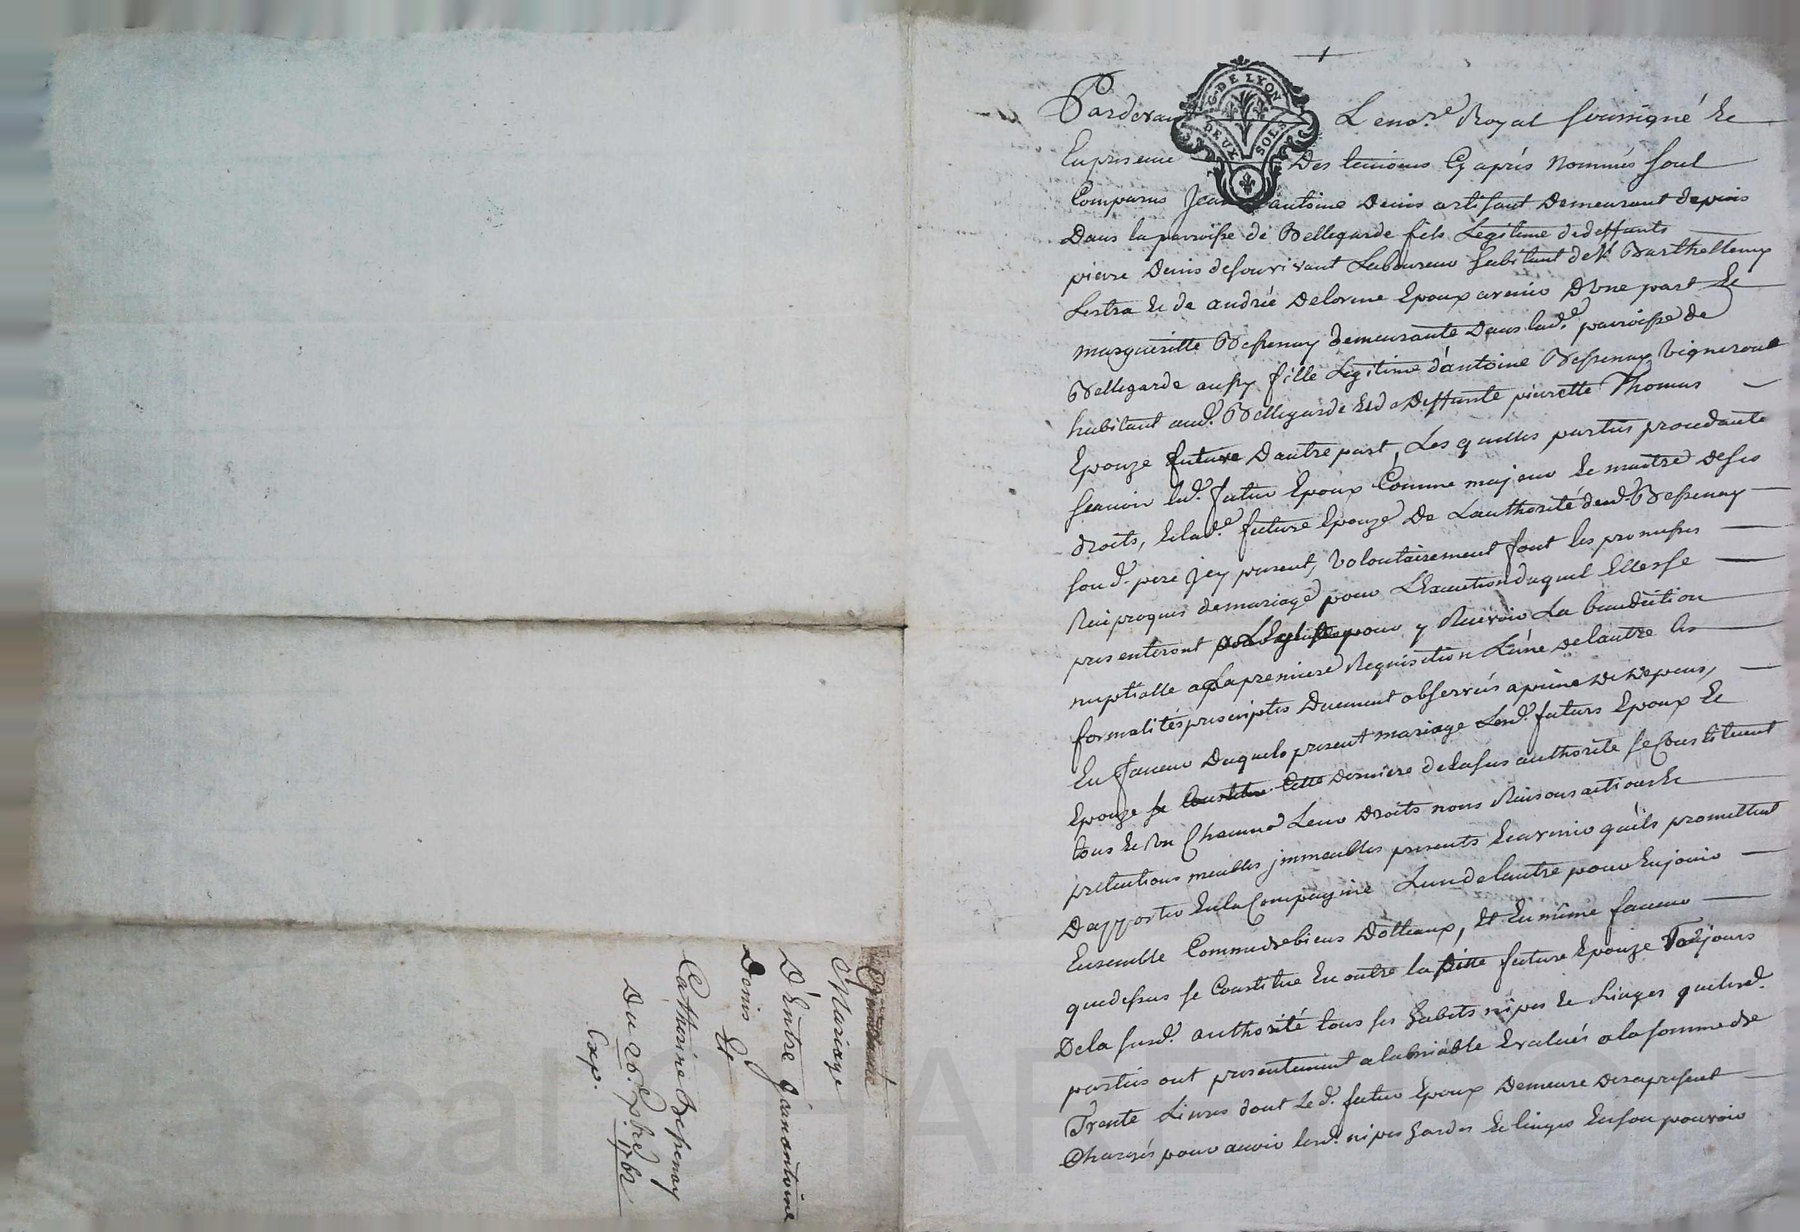 G. DE LYON
DEUX SOLS
Pardevant Le no.re Royal soussigné et
En presence Des temoins Cy aprés nommés sont
Comparus Jean antoine Denis artisant Demeurant depuis
Dans la parroisse de Bellegarde fils Legitime de deffunts
pierre Denis de son vivant Laboureur habitant de St Barthellemy
Lestra et de andrée Delorme Epoux avenir D'une part Et
margueritte Bessenay demeurante Dans lad.e parroisse de
Bellegarde aussy fille Legitime d'antoine Bessenay Vigneron
habitant aud. Bellegarde et de Deffunte pierrette Thomas
Epouze future D'autre part, Les quelles parties procedante
scavoir led. futur Epoux Comme majeur et maitre de ses
droits, et lad.e future Epouze De L'authorité dud. Bessenay
sond. pere Jcy present, Volontairement font les promesses
Reciproques de mariage pour L'Execution duquel Elles se
presenteront pour y Recevoir La benediction
nuptialle a La premiere Requisition L'une de l'autre les
formalités prescriptes Duement observées a peine de Depens,
En faveur Duquels present mariage Lesd. futurs Epoux Et
Epouze se Constitue Cette Derniere de la sus authorité se Constituent
tous Et un Chacuns Leur Droits noms Raisons actions Et
pretentions meubles jmmeubles presents Et avenir qu'ils promettent
D'apporter En la Compagnie L'un de l'autre pour En jouir
Ensemble Comme de biens Dotteaux, Et En même faveur
que dessus se Constitue En outre la future Epouze Toujours
De la susd. authorité tous ses habits nipes Et Linges que lesd.
parties ont presentement a l'abmiable Evalués a la somme de
Trente Livres dont Le d. futur Epoux Demeure Des a present
Chargés pour avoir lesd. nipes hardes Et linges En son pouvoir
Mariage
D'Entre Jean antoine
Denis Et
Catherine Bessenay
Du 26. 9bre 1762
Exp.